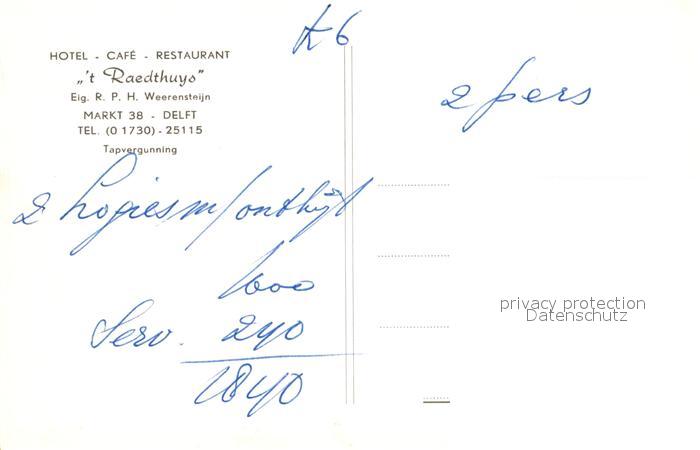 K6
HOTEL - CAFÉ - RESTAURANT
„'t Raedthuys”
Eig. R. P. H. Weerensteijn
MARKT 38 - DELFT
TEL. (0 1730) - 25115
Tapvergunning
2 pers
2 Logies m/ontbijt
1600
Serv. 240
1840
privacy protection
Datenschutz